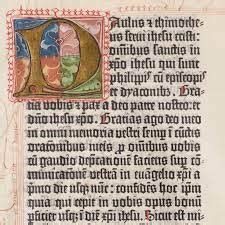 Paulus & thimothe⸗
us serui ihesu cristi:
omnibus sanctis in
xp̄o ihesu qui sunt
philippis cū episcopis
et dyaconibus. Gra⸗
cia vobis & pax a deo patre nostro: et
dn̄o ihesu xp̄o. Gracias ago deo meo
in omni memoria vestri semp̄ ī cunctis
oracionibus meis p̄ omnibus vobis
cū gaudio deprecationē faciens sup cō⸗
municatione vestra in euangelio xp̄i a
prima die usq; nūc: confidēs hoc ip̄m
quia qui cepit in vobis opus bonū
p̄ficiet usq; ī diē xp̄i ihesu. Sicut est mi⸗